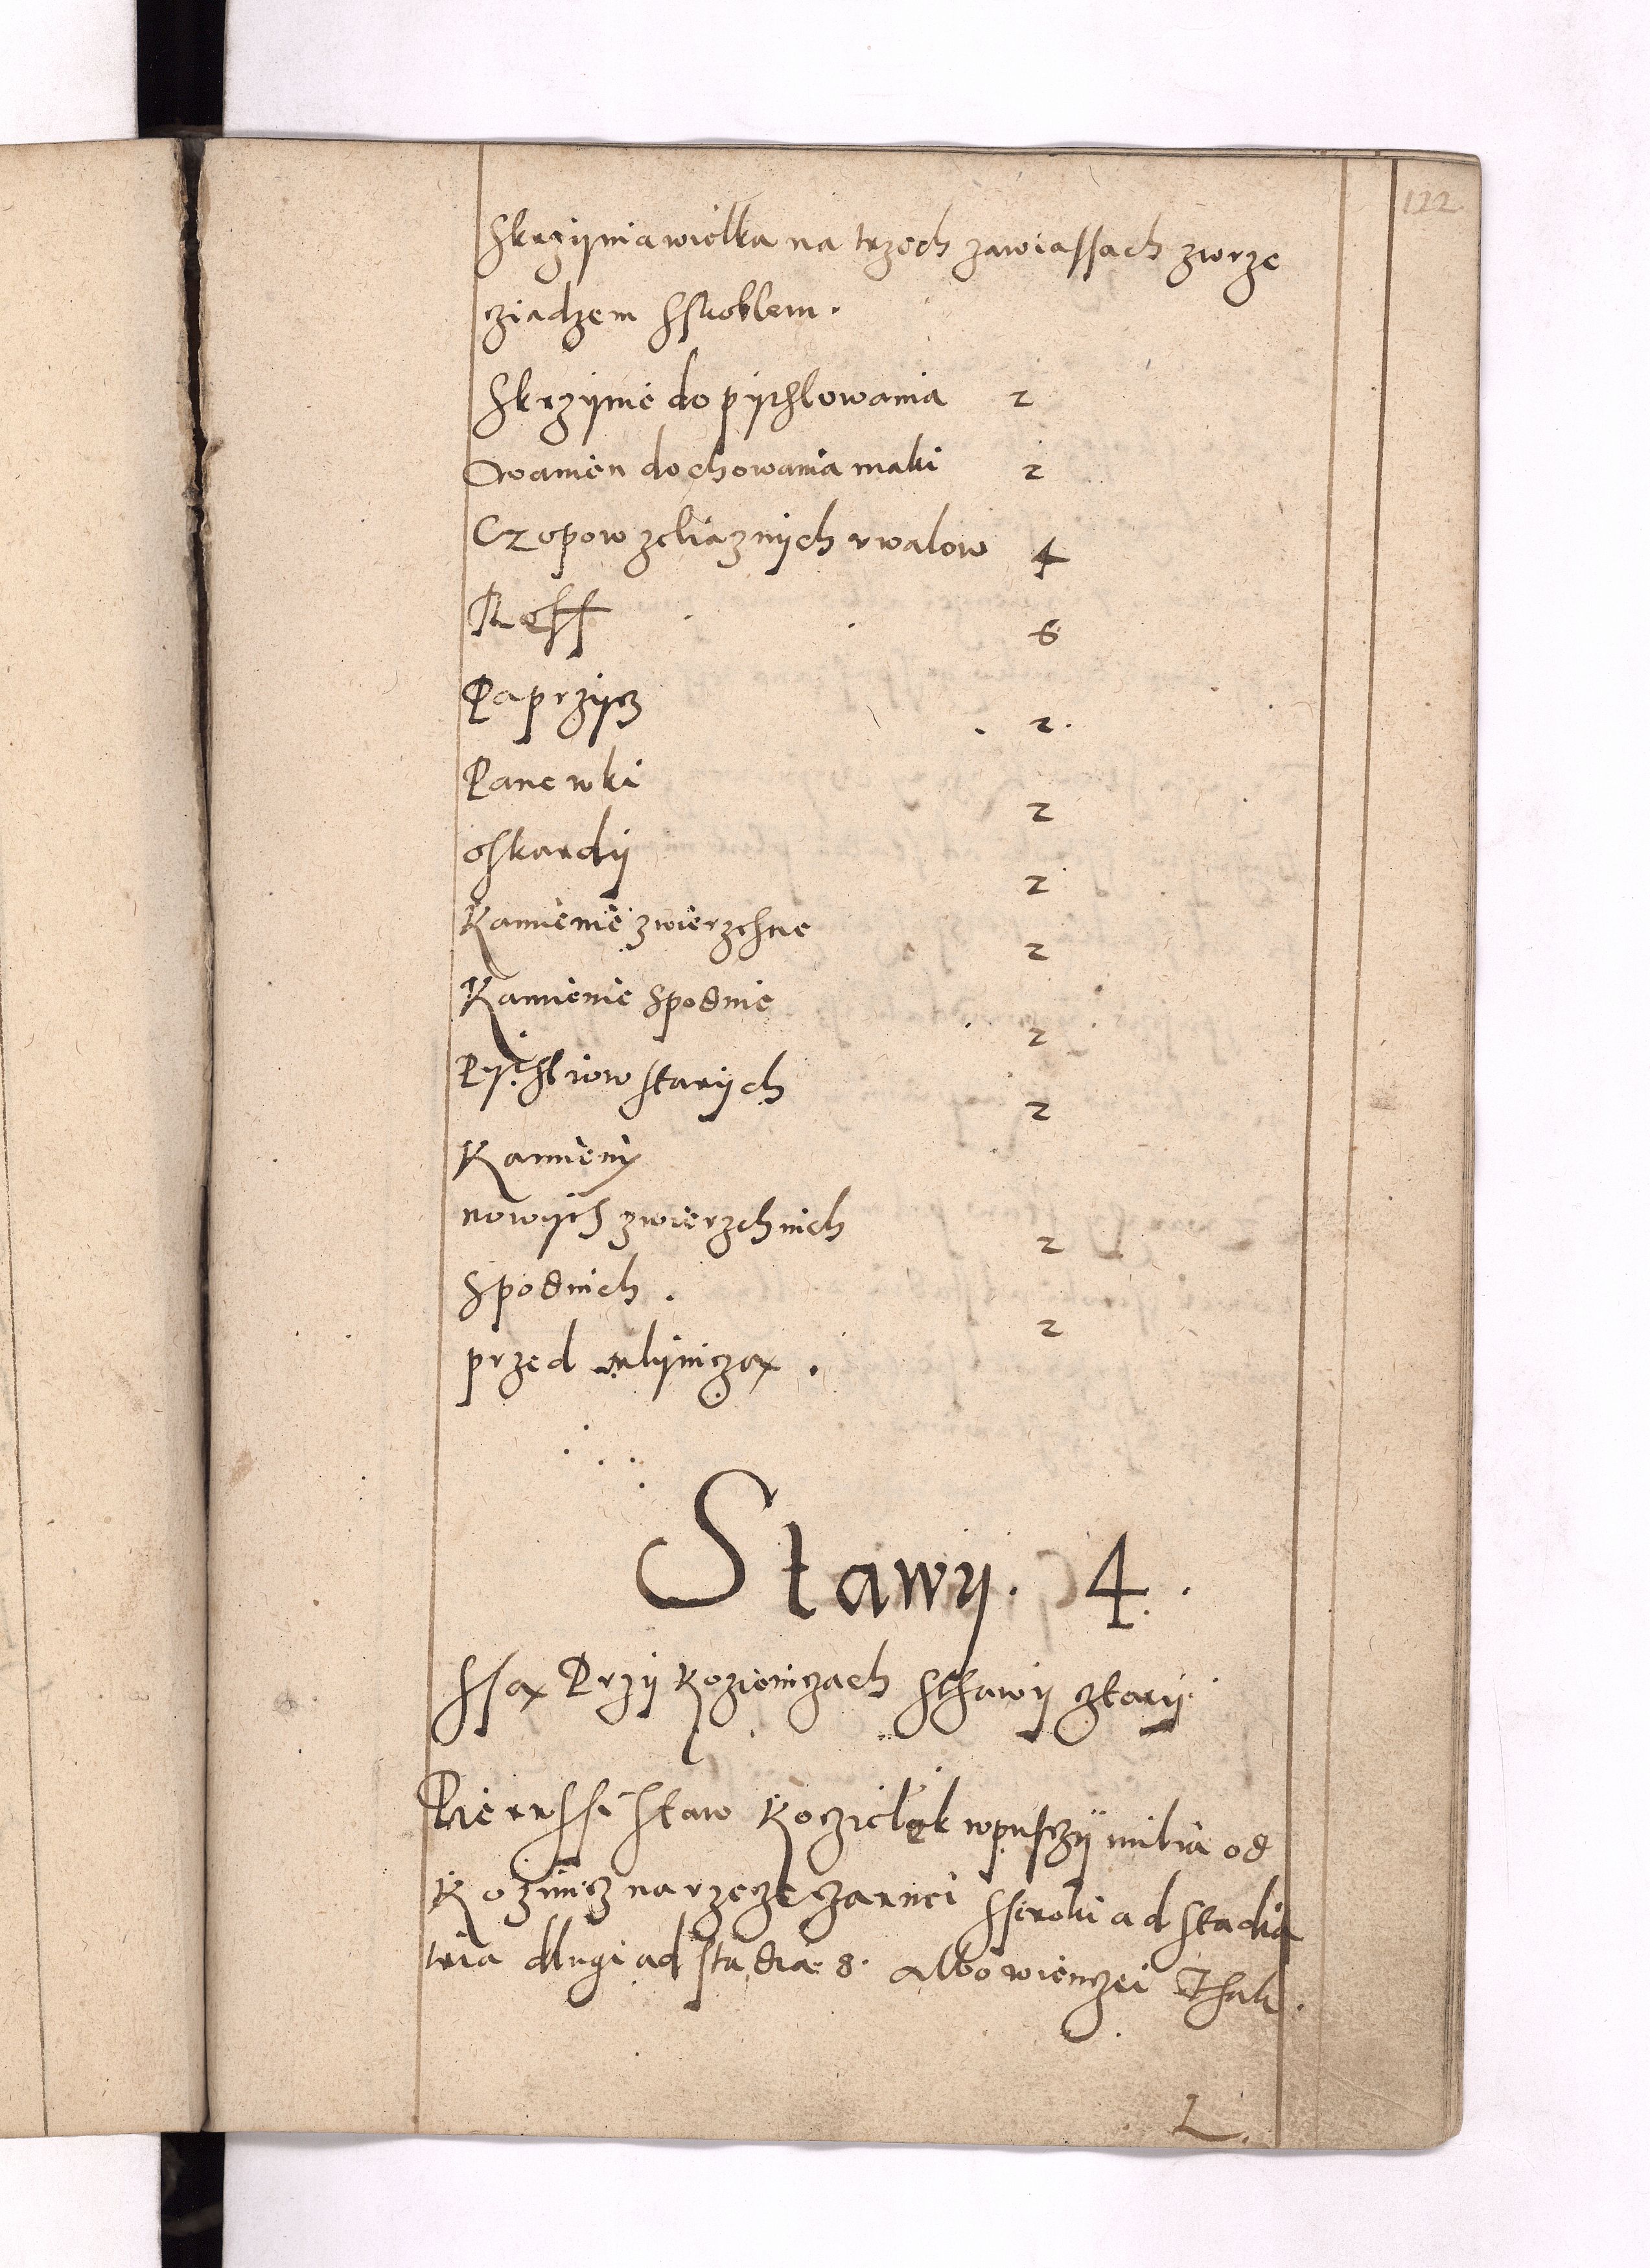 122
Skrzynia wielka na trzech zawiassach zwrze
cziadzem sskoblem.
Skrzynie do pychlowania 2
do chowania maki 2
Czopow zeliaznych v walow 4
Reff 6
Paprzycz 2.
Panewki 2
oskardy 2
Kamienie zwierzchne 2
Kamienie spodnie 2
Pychliow starych 2
Kamieny
nowych zwierzchnich 2
Spodnich. 2
przed mlyniczą.
Stawy. 4.
Ssą Przy Kozieniczach Sthawy cztery
Pierwssi Staw Kocziełek w puszczy milia od
Kozinicz na rzecze czarnei sseroki ad stadia
tria dlugi ad stadia 8. Albo wienczei Thak.
L.